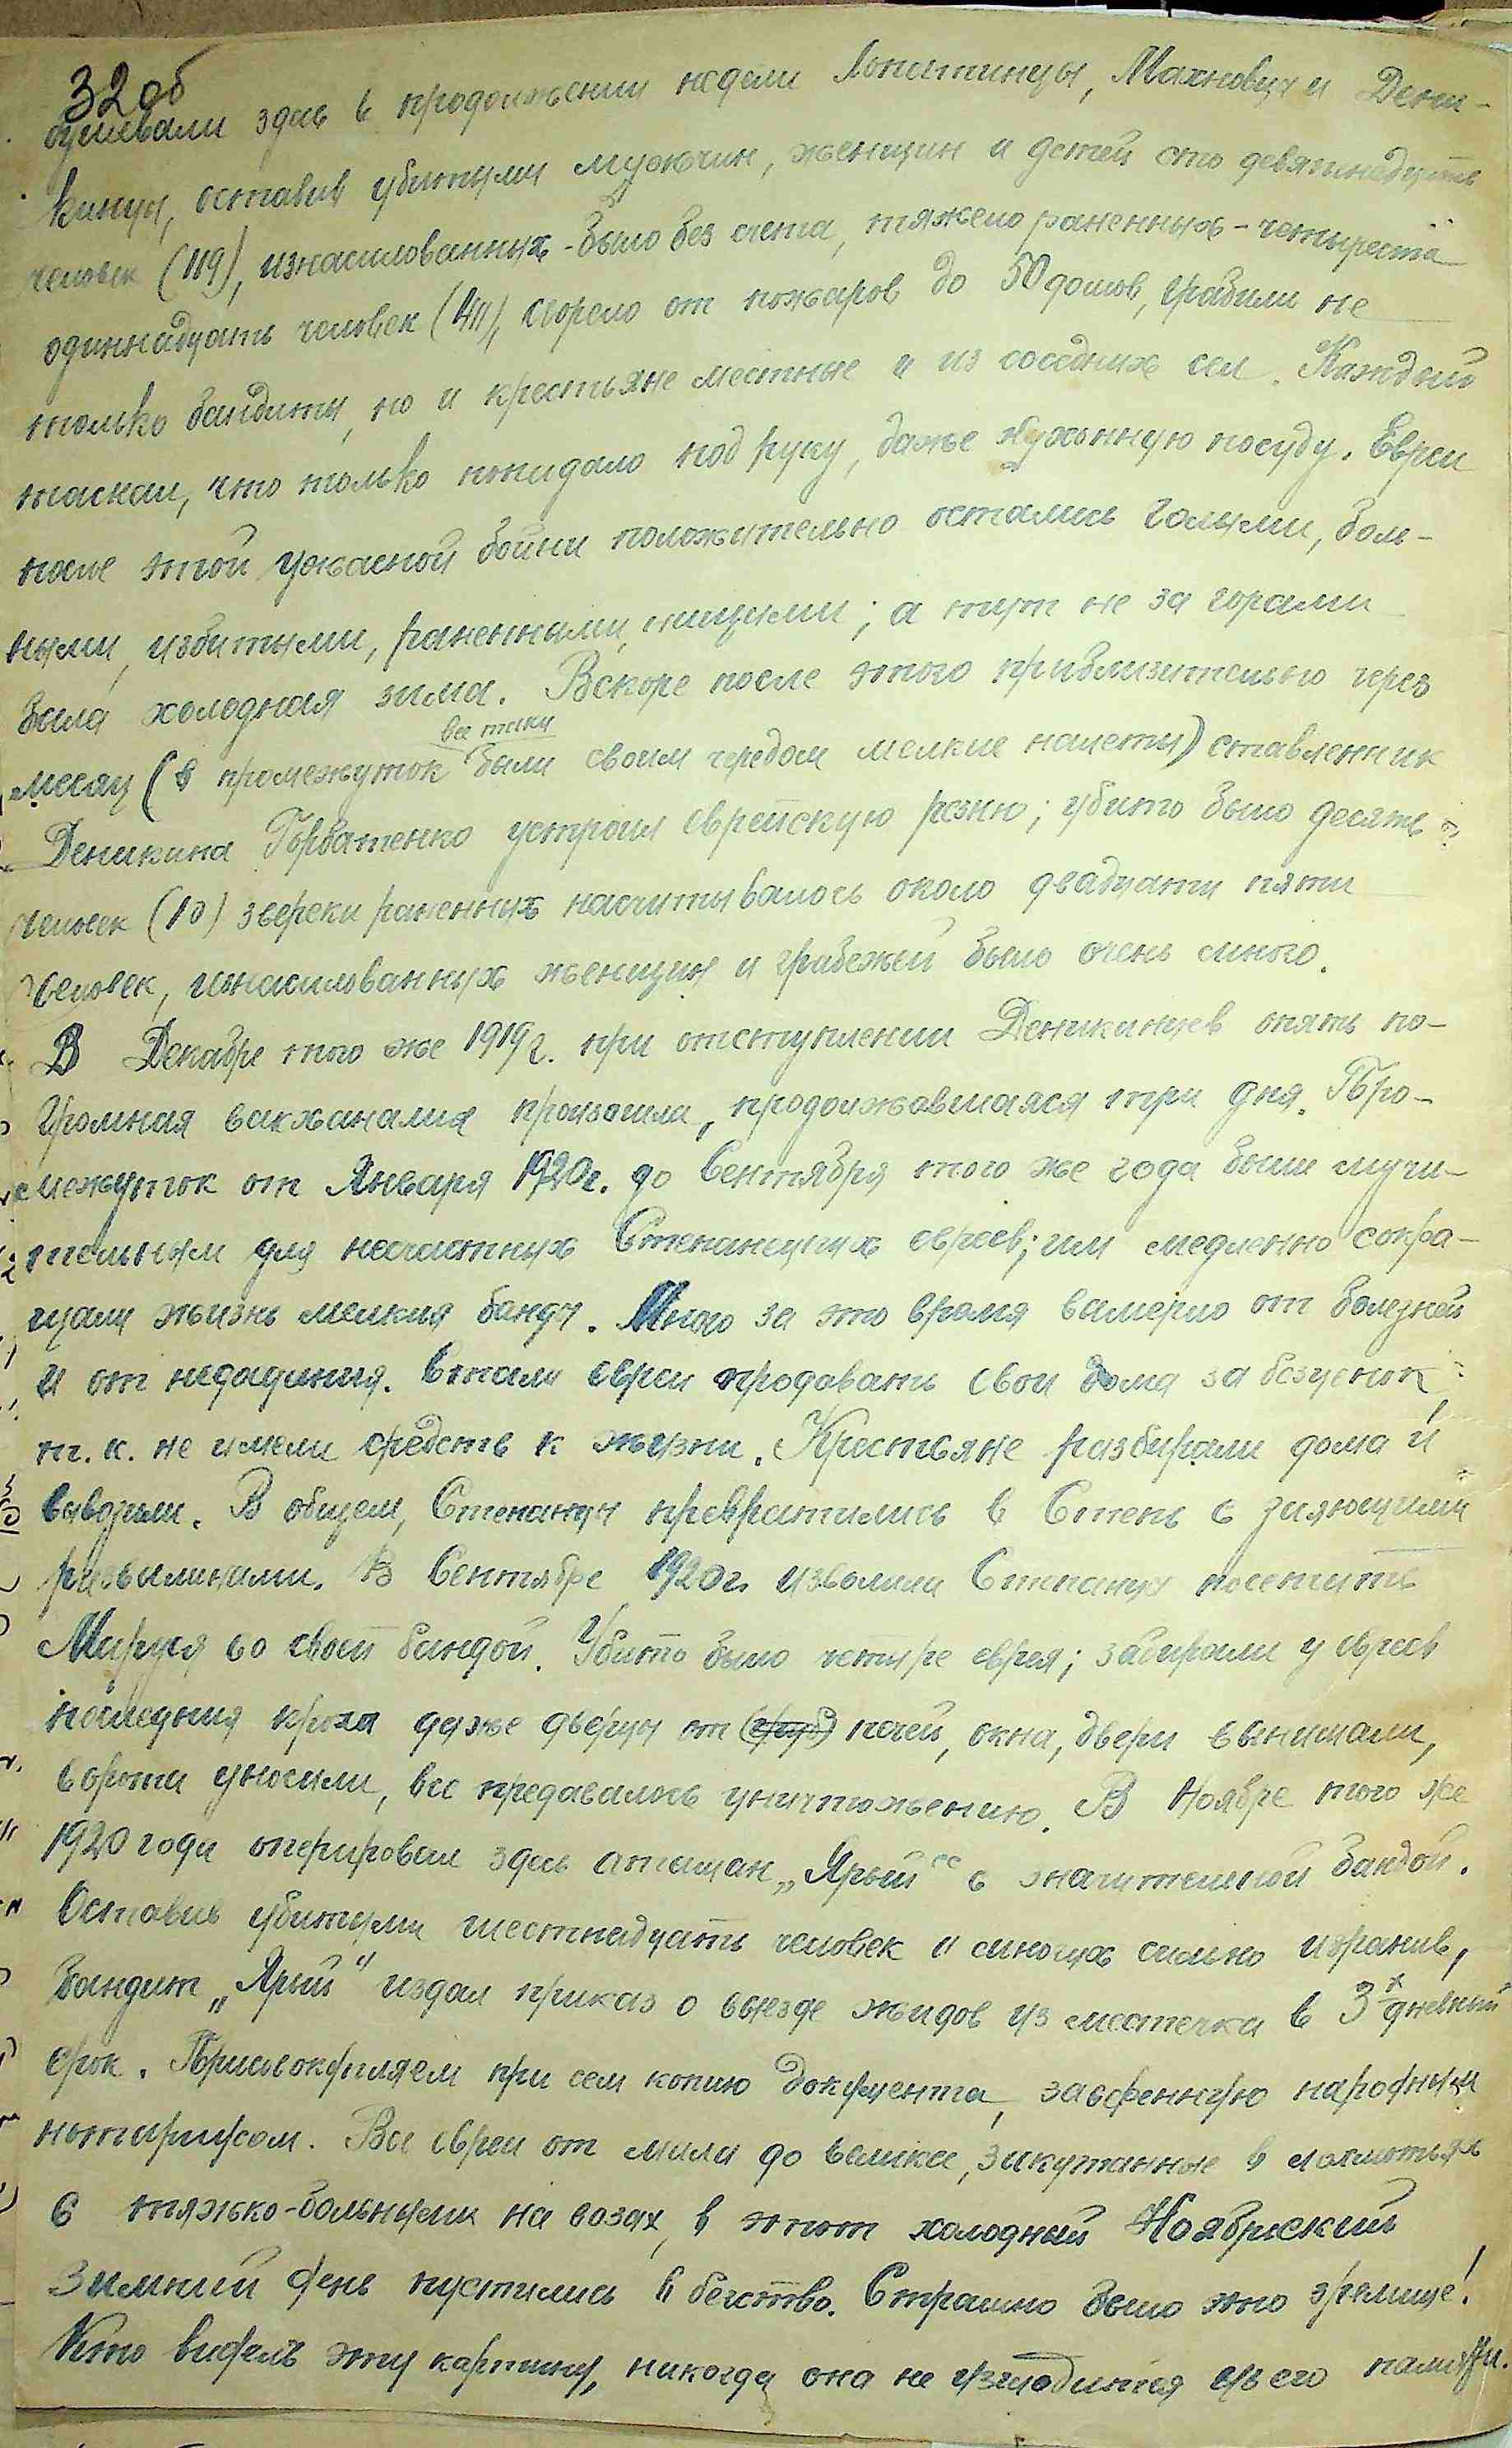 32 об
бушевали здесь в продолжении недели Хопитинцы, Махновцы и Дени-
кинцы, оставив убитыми мужчин, женщин и детей сто девятнадцать
человек (119), изнасилованных - было без счета, тяжело раненных - четыреста
одиннадцать человек (411), сгорело от пожаров до 50 домов, грабили не
только бандиты, но и крестьяне местные и из соседних сел. Каждый
таскал, что только попидало под руку, даже кухонную посуду. Евреи
после этой ужасной бойни положительно остались голыми, боль-
ными, избитыми, раненными, нищими; а тут не за горами
была холодная зима. Вскоре после этого приблизительно через
месяц (в промежуток все таки были своим чередом мелкие налеты) ставленник
Деникина Горбатенко устроил еврейскую резню; убито было десять
человек (10) зверски раненных насчитывалось около двадцати пяти
человек, изнасилованных женщин и грабежей было очень много.
В Декабре того же 1919 г. при отступлении Деникинцев опять по-
громная вакханалия произошла, продолжавшаяся три дня. Про-
межуток от Января 1920 г. до Сентября того же года были мучи-
тельным для несчастных Степанецких евреев; им медленно сокра-
щали жизнь мелкия банды. Много за это время вымерло от болезней
и от недоедания. Стали евреи продовать свои дома за безценок,
т. к. не имели средств к жизни. Крестьяне разбирали дома и
вывозили. В общем, Степанцы превратились в Степь с зияющими
развалинами. В Сентябре 1920 г. изволили Степанцы посетить
Маруся со своей бандой. Убито было четыре еврея; забирали у евреев
последния кроха даже дверцы от печей, окна, двери вынимали,
ворота уносили, все предавалось уничтожению. В Ноябре того же
1920 года оперировал здесь атаман „Ярый“ с значительной бандой.
Оставив убитыми шестнадцать человек и многих сильно изранив,
бандит „Ярый" издал приказ о выезде жидов из местечка в 3х дневный
срок. Присовокупляем при сем копию документа, заверенную народным
нотариусом. Все евреи от мала до велика, закутанные в лохмотьях
с тяжко-больными на возах, в этот холодный Ноябрьский
зимний день пустились в бегство. Страшно было это зрелище!
Кто видель эту картину, никогда она не изгладится из его памяти.